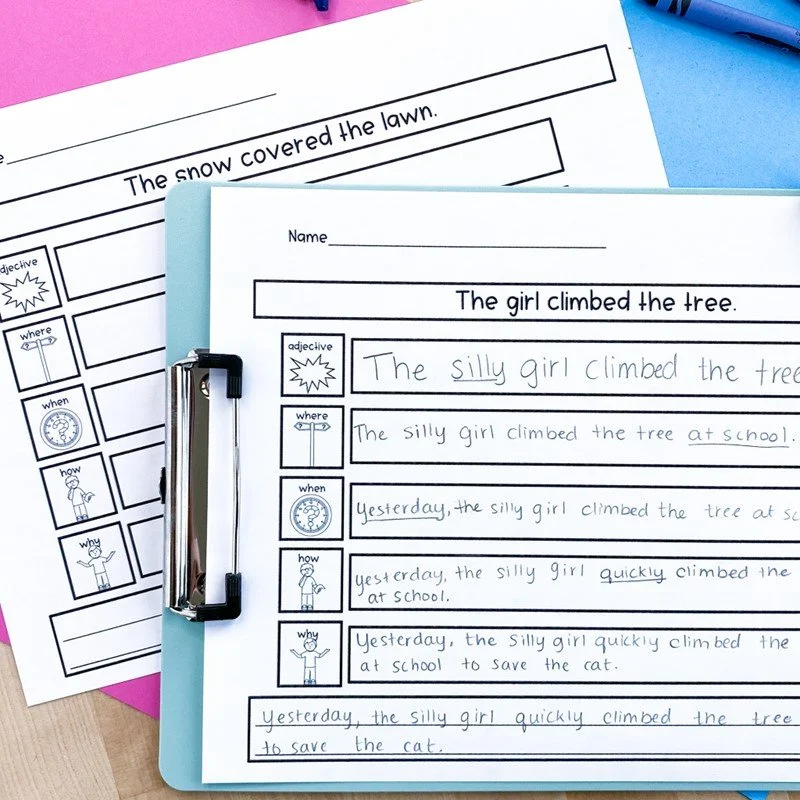 The snow covered the lawn.
djective
where
when
how
why
Name
The girl climbed the tree.
adjective
The silly girl climbed the tree
where
The silly girl climbed the tree at school.
when
Yesterday, the silly girl climbed the tree at sc
how
yesterday, the silly girl quickly climbed the
at school.
why
Yesterday, the silly girl quickly climbed the
at school to save the cat.
Yesterday, the silly girl quickly climbed the tree
to save the cat.